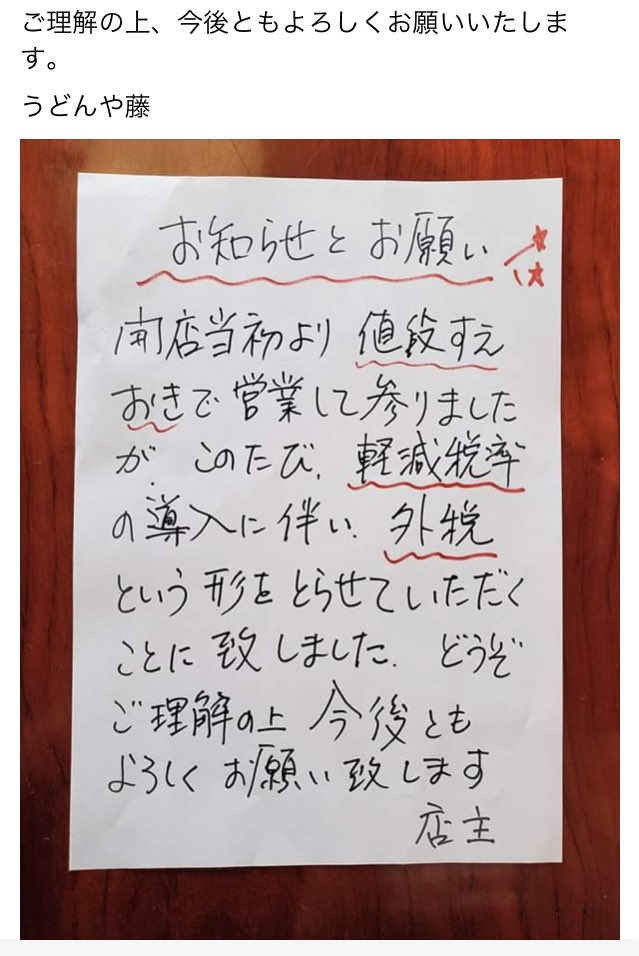 ご理解の上、今後ともよろしくお願いいたしま
す。
うどんや藤
お知らせとお願い
開店当初より値段すえ
おきで営業して参りました
が、このたび、軽減税率
の導入に伴い、外税
という形をとらせていただく
ことに致しました。どうぞ
ご理解の上今後とも
よろしくお願い致します
店主